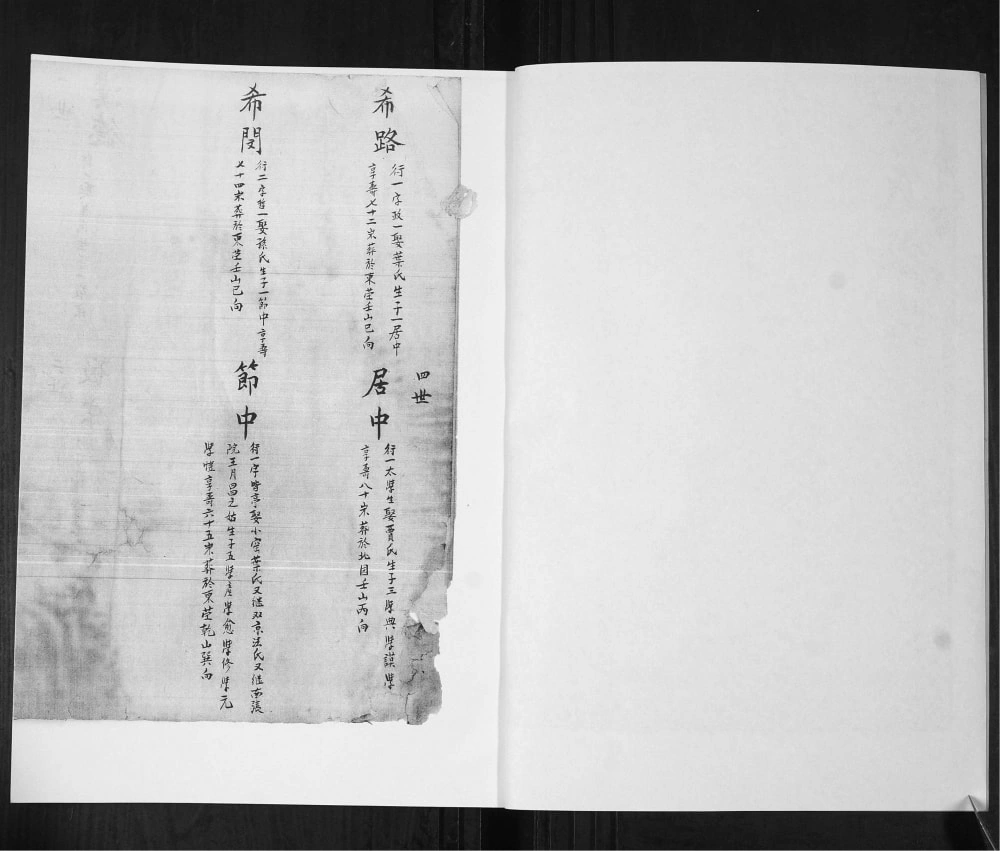 希路
行一字政一娶葉氏生子一居中
享壽七十二朿葬於東塋壬山巳向
四世
居中
行一太學生娶賈氏生子三學典學謨學
享壽八十朿葬於北園壬山丙向
希閔
行二字哲一娶孫氏生子一節中享壽
七十四朿葬於東塋壬山巳向
節中
行一字皆亭娶小窑葉氏又继双京法氏又继南張
院王月昌之姑生子五學彥學愈學修學元
學愷享壽六十五朿葬於東塋乾山巽向